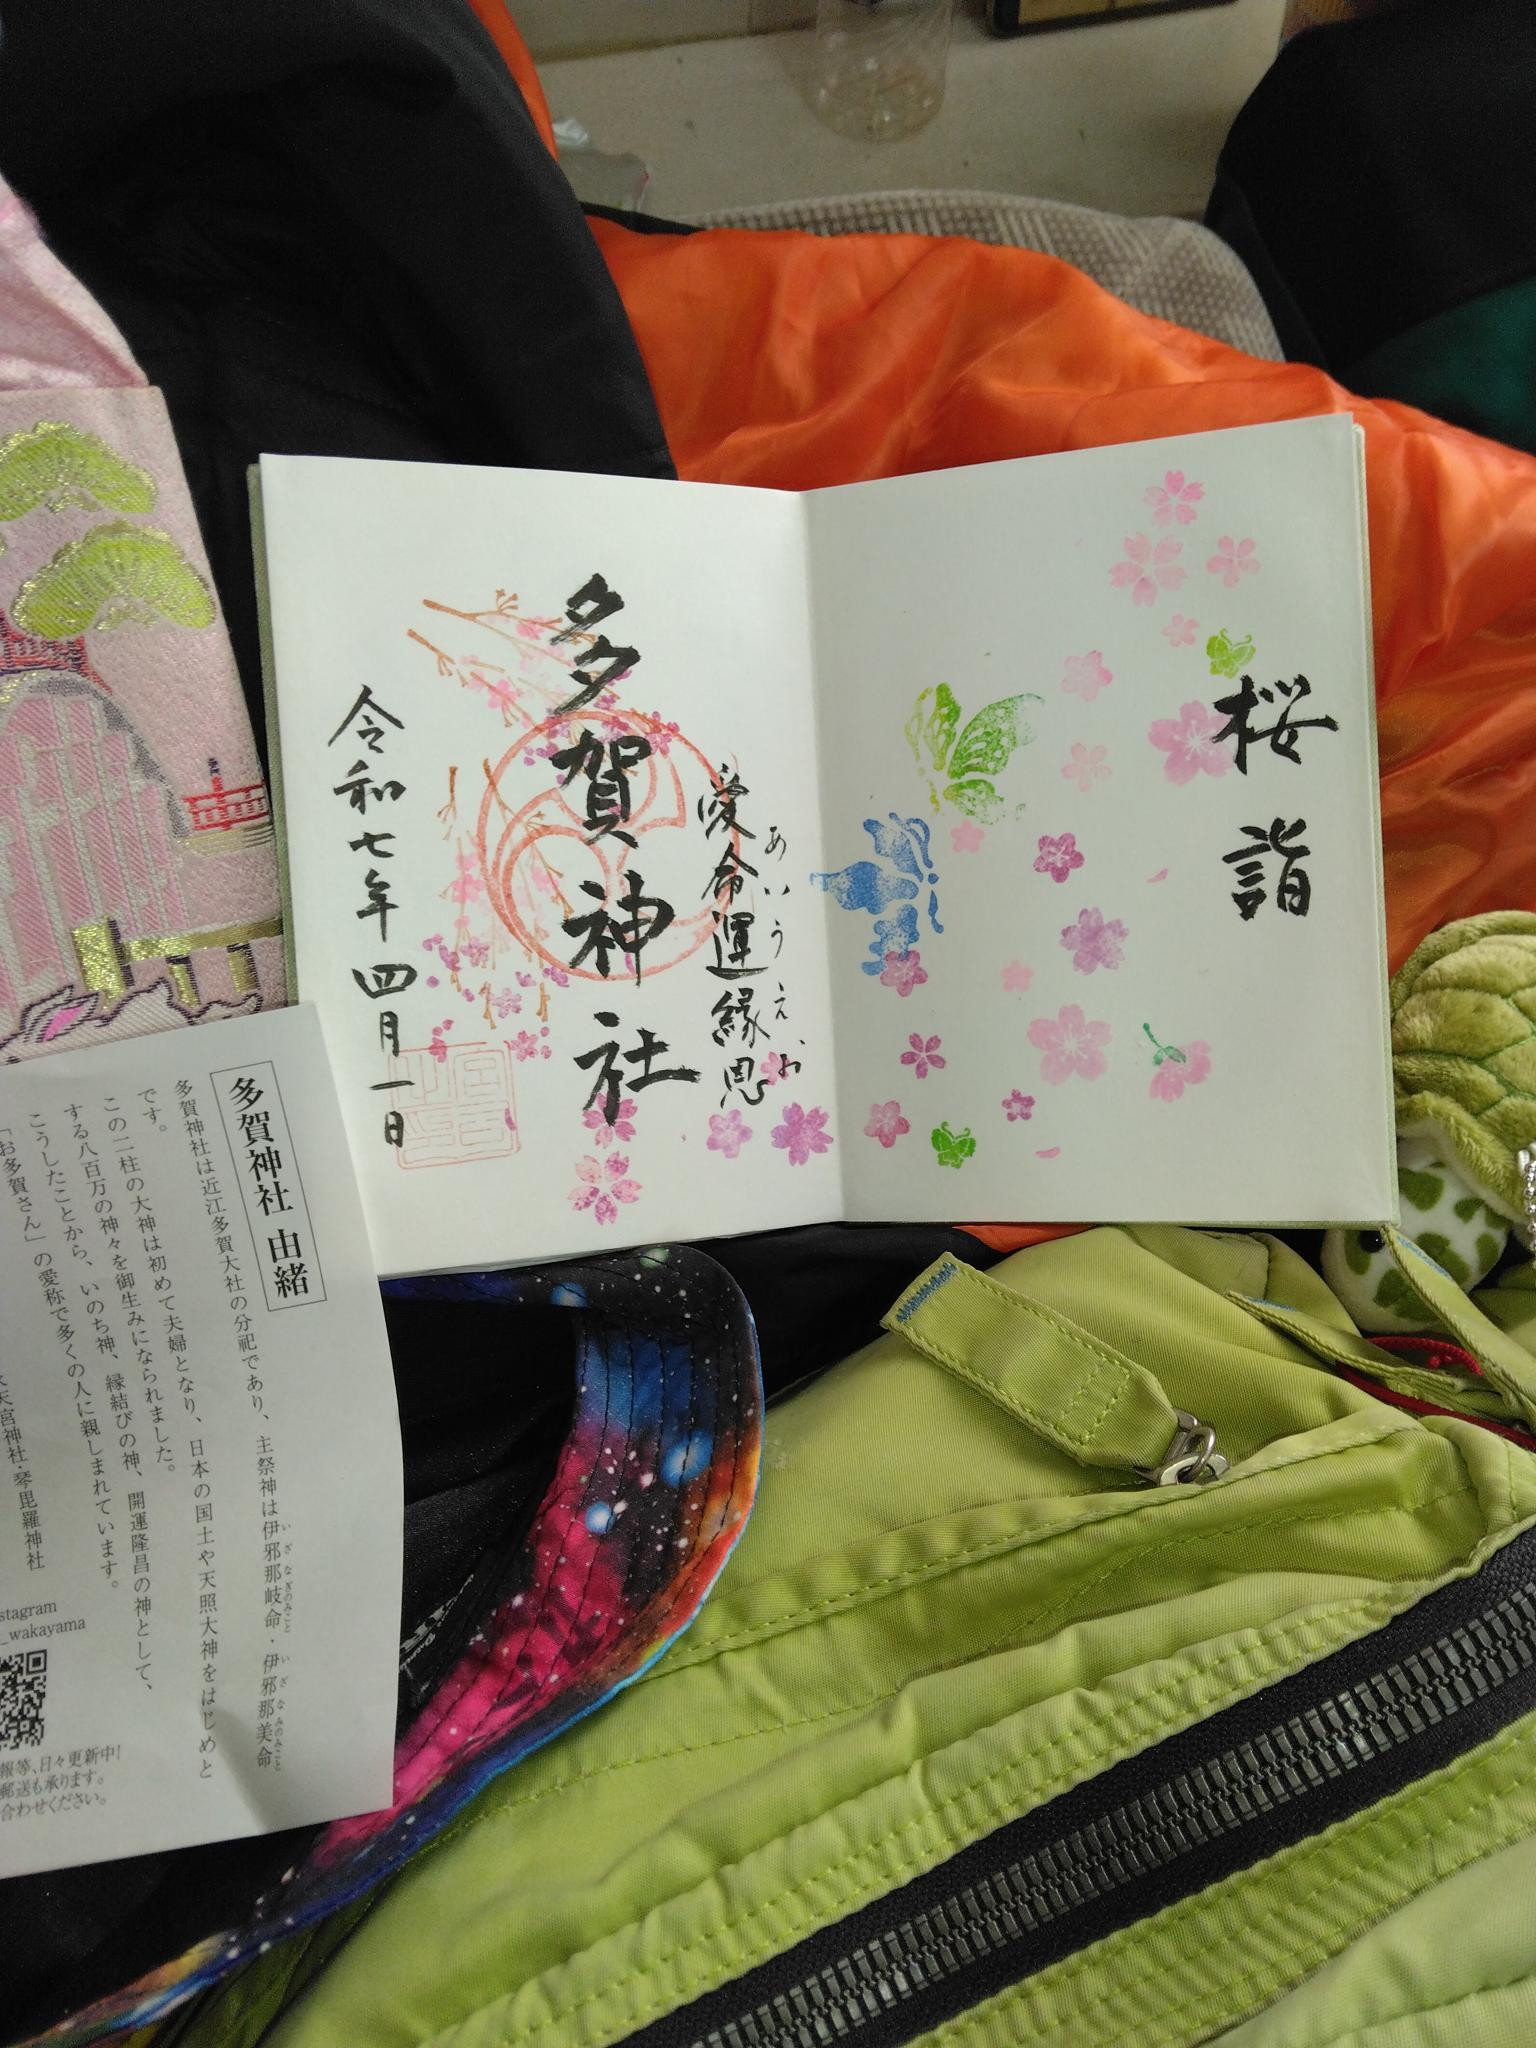 桜詣
愛命運縁恩
あいうえお
多賀神社
令和七年四月一日
多賀神社 由緒
多賀神社は近江多賀大社の分祀であり、主祭神は伊邪那岐命・伊邪那美命
いざなぎのみこと
いざなみのみこと
です。
この二柱の大神は初めて夫婦となり、日本の国土や天照大神をはじめと
する八百万の神々を御生みになられました。
こうしたことから、いのち神、縁結びの神、開運隆昌の神として、
「お多賀さん」の愛称で多くの人に親しまれています。
天宮神社・琴毘羅神社
stagram
_wakayama
報等、日々更新中!
郵送も承ります。
合わせください。